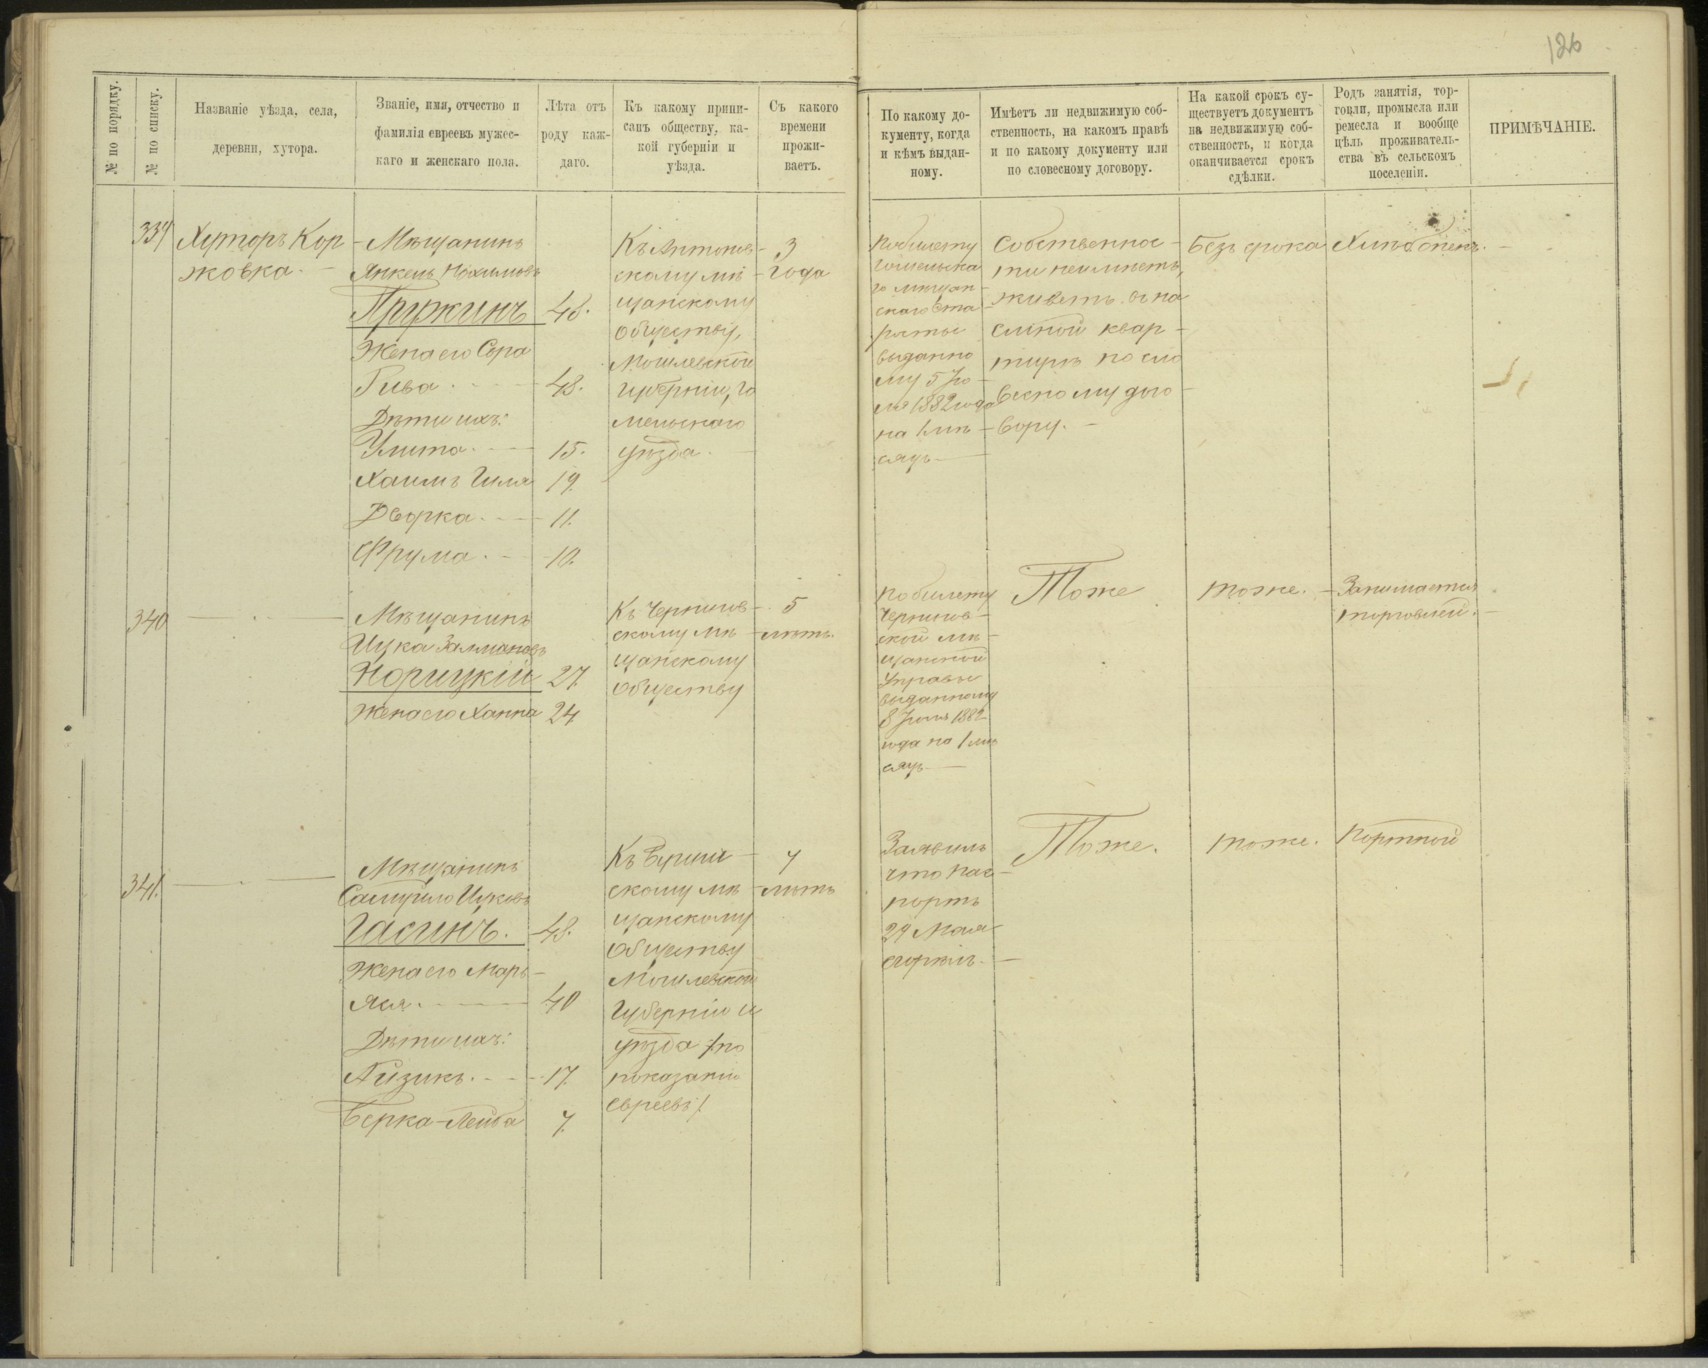 126
№ по порядку.
№ по списку.
Названіе уѣзда, села,
деревни, хутора.
Званіе, имя, отчество и
фамилія евреевъ мужес-
каго и женскаго пола.
Лѣта отъ
роду каж-
даго.
Къ какому припи-
санъ обществу, ка-
кой губерніи и
уѣзда.
Съ какого
времени
прожи-
ваетъ.
По какому до-
кументу, когда
и кѣмъ выдан-
ному.
Имѣетъ ли недвижимую соб-
ственность, на какомъ правѣ
и по какому документу или
по словесному договору.
На какой срокъ су-
ществуетъ документъ
на недвижимую соб-
ственность, и когда
оканчивается срокъ
сдѣлки.
Родъ занятія, тор-
говли, промысла или
ремесла и вообще
цѣль проживатель-
ства въ сельскомъ
поселеніи.
ПРИМѢЧАНІЕ.
339
Хуторъ Кор
жовка.
Мѣщанинъ
Янкель Нохимовъ
Пружинъ 48.
Жена его Сора
Гива 48.
Дѣти ихъ:
Улита 15.
Хаимъ Гиля 19.
Дворка 11.
Фрума 10.
Къ Антонов-
скому мѣ-
щанскому
обществу,
Могилевской
губерніи, Го
мельскаго
уѣзда.
3
года
По билету
Гомельска
го мѣщан-
скаго ста
росты
выданно
му 5 Iю-
ля 1882 года
на 1 мѣ-
сяцъ
Собственнос-
ти неимѣетъ,
живетъ въ на
емной квар-
тирѣ по сло
весному дого-
вору.
Безъ срока
Хлѣбопекъ.
340
Мѣщанинъ
Ицка Залмановъ
Норицкій 27.
Жена его Ханна 24
Къ Чернигов-
скому мѣ-
щанскому
обществу
5
лѣтъ.
По билету
Чернигов-
ской мѣ-
щанской
Управы
выданному
8 Iюля 1882
года на 1 мѣ
сяцъ
Тоже
тоже.
Занимается
торговлей.
341.
Мѣщанинъ
Самуйло Ицковъ
Гасинъ. 48.
Жена его Марь-
яся. 40
Дѣти ихъ:
Айзикъ. 17.
Берка-Лейба 7.
скому мѣ
щанскому
обществу
Могилевской
Губерніи и
уѣзда /по
показанію
евреевъ/
лѣтъ
Заявилъ
что пас-
портъ
29 Мая
сгорѣлъ.
Тоже.
тоже.
Портной